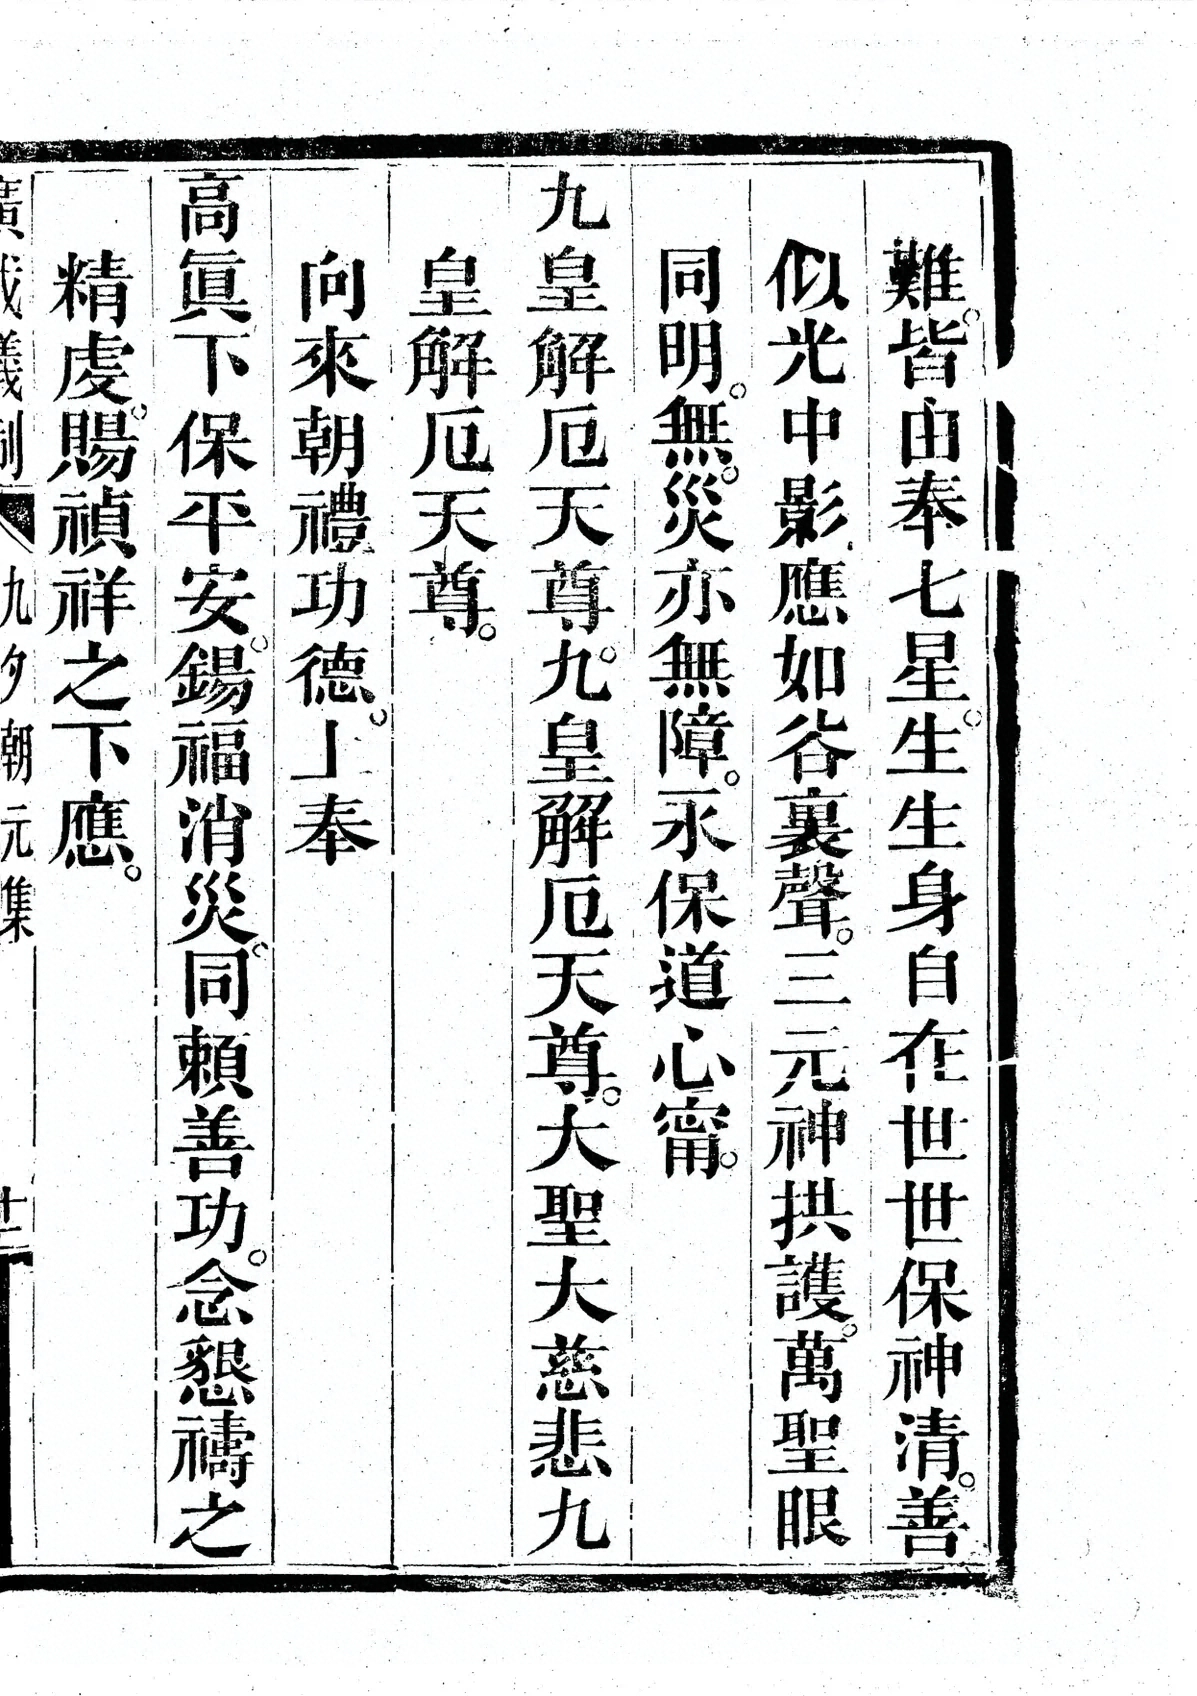 難。皆由奉七星。生生身自在世世保神清。善
似光中影應如谷裏聲。三元神拱護。萬聖眼
同明。無。災亦無障。永保道心甯。
九皇解厄天尊。九皇解厄天尊。大聖大慈悲九
皇解厄天尊。
向來朝禮功德。丄奉
高眞下保平安。錫福消災。同賴善功。念懇禱之
精虔。賜禎祥之下應。
廣成儀制 九夕朝元集 十二